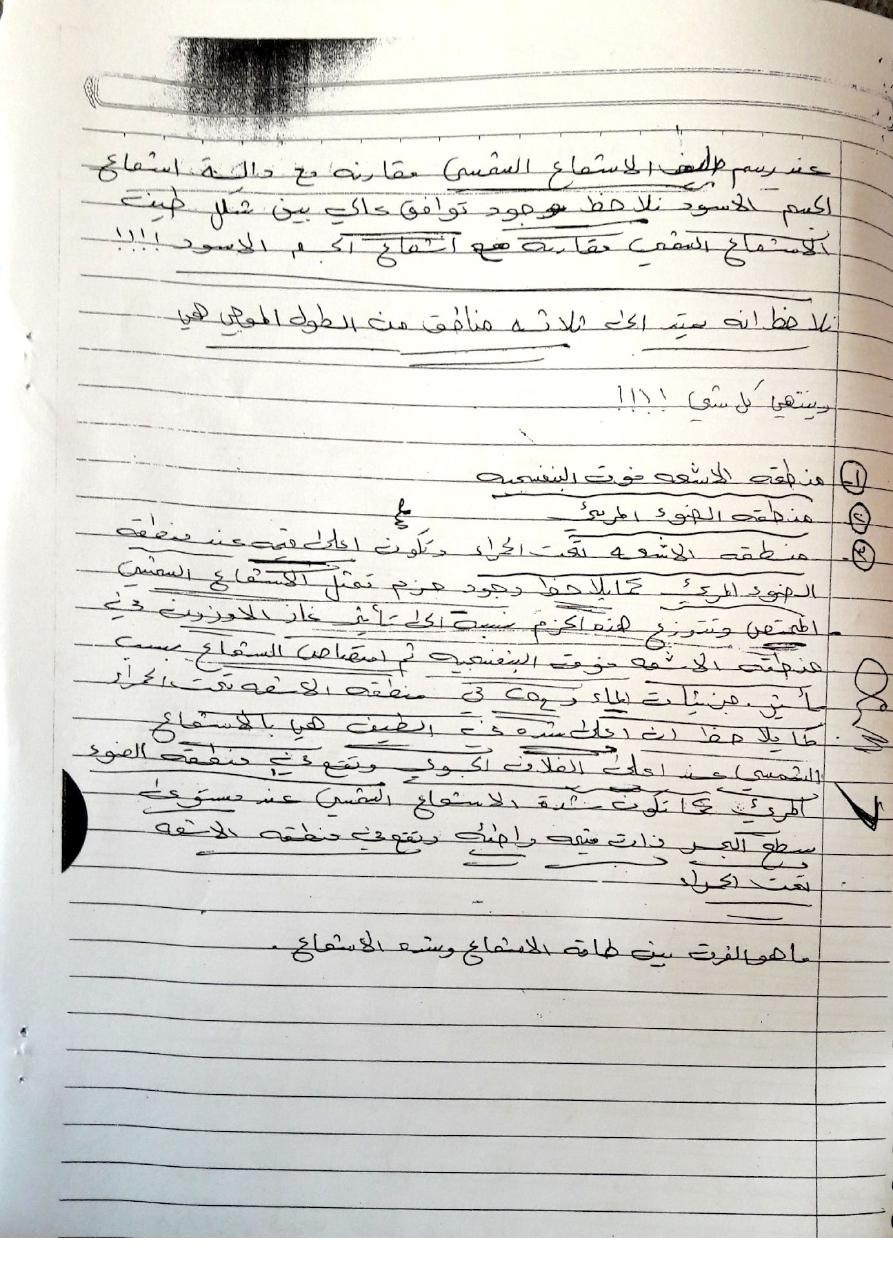 عند رسم طيف الاشعاع الشمسي مقارنه مع دالـة اشعاع
الجسم الاسود نلاحظ وجود توافق عالي بين شكل طيف
الاشعاع الشمسي مقارنة مع اشعاع الجسم الاسود !!!!
نلاحظ انه يمتد الى ثلاثه مناطق من الطول الموجي هي
وينتهي كل شي !!!!
١- منطقه الاشعه فوق البنفسجيه
٢- منطقه الضوء المرئي
٣- منطقه الاشعه تحت الحمراء وتكون اعلى قيمه عند منطقة
الضوء المرئي كما يلاحظ وجود حزم تمثل الاشعاع الشمسي
الممتص وتتوزع هذه الحزم نسبة الى تأثير غاز الاوزون في
منطقه الاشعه فوق البنفسجيه ثم امتصاص الشعاع بسبب
تأثير جزيئات الماء و CO2 في منطقه الاشعه تحت الحمراء
كما يلاحظ ان اعلى شده في الطيف هي بالاشعاع
الشمسي عند اعلى الغلاف الجوي وتقع في منطقه الضوء
المرئي كما تكون شدة الاشعاع الشمسي عند مستوى
سطح البحر ذات قيمه واطئه وتقع في منطقه الاشعه
تحت الحمراء
ما هو الفرق بين طاقة الاشعاع وشده الاشعاع .